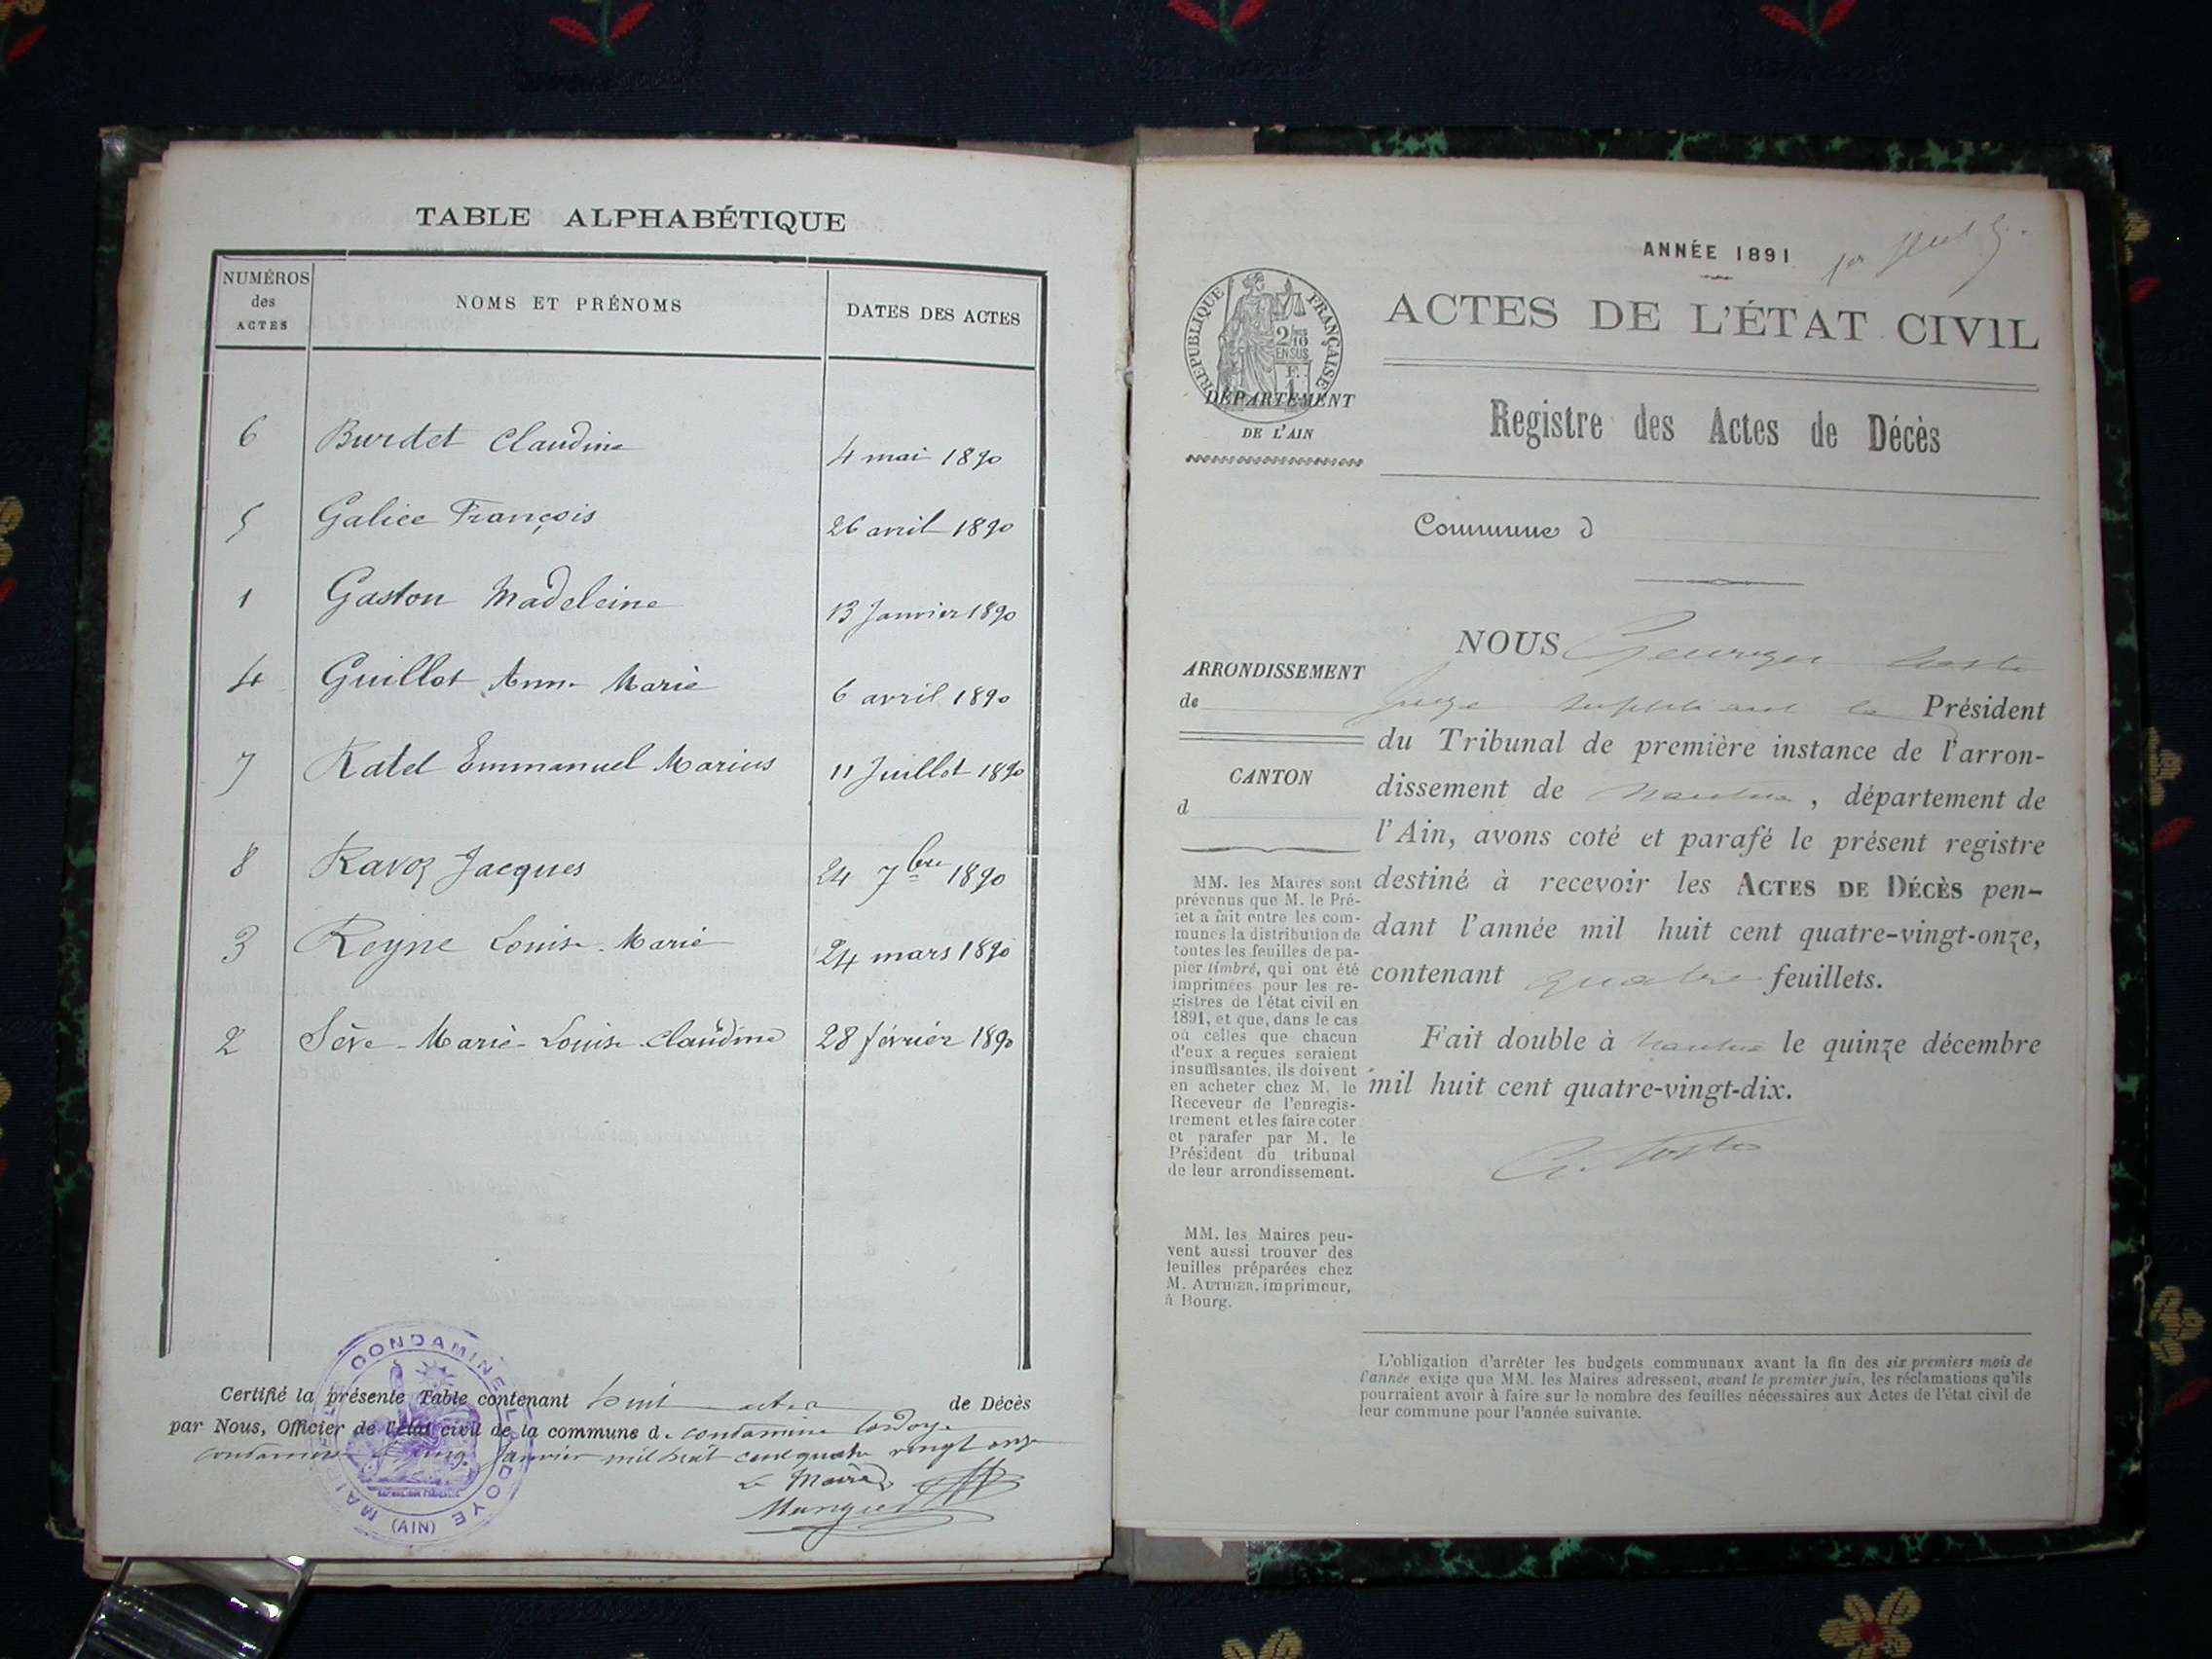 TABLE ALPHABÉTIQUE
NUMÉROS des ACTES
NOMS ET PRÉNOMS
DATES DES ACTES
6 Burdet Claudine 4 mai 1890
5 Galice François 26 avril 1890
1 Gaston Madeleine 13 Janvier 1890
4 Guillot Anne Marie 6 avril 1890
7 Ratel Emmanuel Marius 11 Juillet 1890
8 Ravoz Jacques 24 7bre 1890
3 Reyne Louise Marie 24 mars 1890
2 Sève Marie Louise Claudine 28 février 1890
Certifié la présente Table contenant huit actes de Décès
par Nous, Officier de l'état civil de la commune de condamine
Janvier mil huit cent quatre vingt onze
Le Maire
MAIRIE CONDAMINE LA DOYE (AIN)
ANNÉE 1891
ACTES DE L'ÉTAT CIVIL
RÉPUBLIQUE FRANÇAISE
2/10 EN SUS
F. 1
DÉPARTEMENT
DE L'AIN
Registre des Actes de Décès
Commune d
ARRONDISSEMENT
de
CANTON
d
MM. les Maires sont
prévenus que M. le Pré-
fet a fait entre les com-
munes la distribution de
toutes les feuilles de pa-
pier timbré, qui ont été
imprimées pour les re-
gistres de l'état civil en
1891, et que, dans le cas
où celles que chacun
d'eux a reçues seraient
insuffisantes, ils doivent
en acheter chez M. le
Receveur de l'enregis-
trement et les faire coter
et parafer par M. le
Président du tribunal
de leur arrondissement.
MM. les Maires peu-
vent aussi trouver des
feuilles préparées chez
M. AUTHIER, imprimeur,
à Bourg.
NOUS Georges Coste
Juge suppléant le Président
du Tribunal de première instance de l'arron-
dissement de Nantua, département de
l'Ain, avons coté et parafé le présent registre
destiné à recevoir les ACTES DE DÉCÈS pen-
dant l'année mil huit cent quatre-vingt-onze,
contenant quatre feuillets.
Fait double à Nantua le quinze décembre
mil huit cent quatre-vingt-dix.
G. Coste
L'obligation d'arrêter les budgets communaux avant la fin des six premiers mois de
l'année exige que MM. les Maires adressent, avant le premier juin, les réclamations qu'ils
pourraient avoir à faire sur le nombre des feuilles nécessaires aux Actes de l'état civil de
leur commune pour l'année suivante.